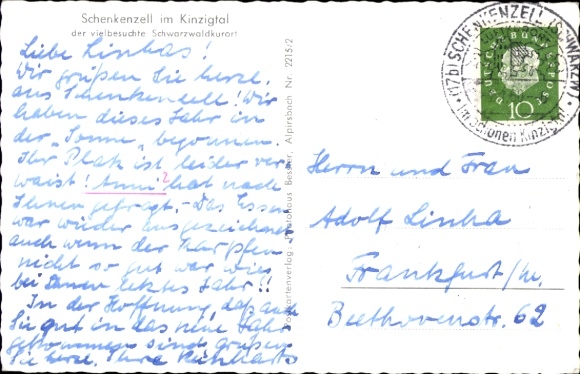 Schenkenzell im Kinzigtal
der vielbesuchte Schwarzwaldkurort
Liebe Linhas!
Wir grüßen Sie herzl.
aus Schenkenzell! Wir
haben dieses Jahr in
der „Sonne" begonnen.
Ihr Platz ist leider ver-
waist! Anni? hat nach
Ihnen gefragt. - Das Essen
war wieder ausgezeichnet
auch wenn der
nicht so gut war wie
bei Ihnen letztes Jahr!!
In der Hoffnung, daß auch
Sie gut in das neue Jahr
gekommen sind grüßen
Sie herzl. Ihre
Postkartenverlag: Photohaus Besemer, Alpirsbach Nr. 2215/2
(17b) SCHENKENZELL (SCHWARZW)
im schönen Kinzigtal
DEUTSCHE BUNDESPOST
10
Herrn und Frau
Adolf Linha
Frankfurt/M.
Beethovenstr. 62